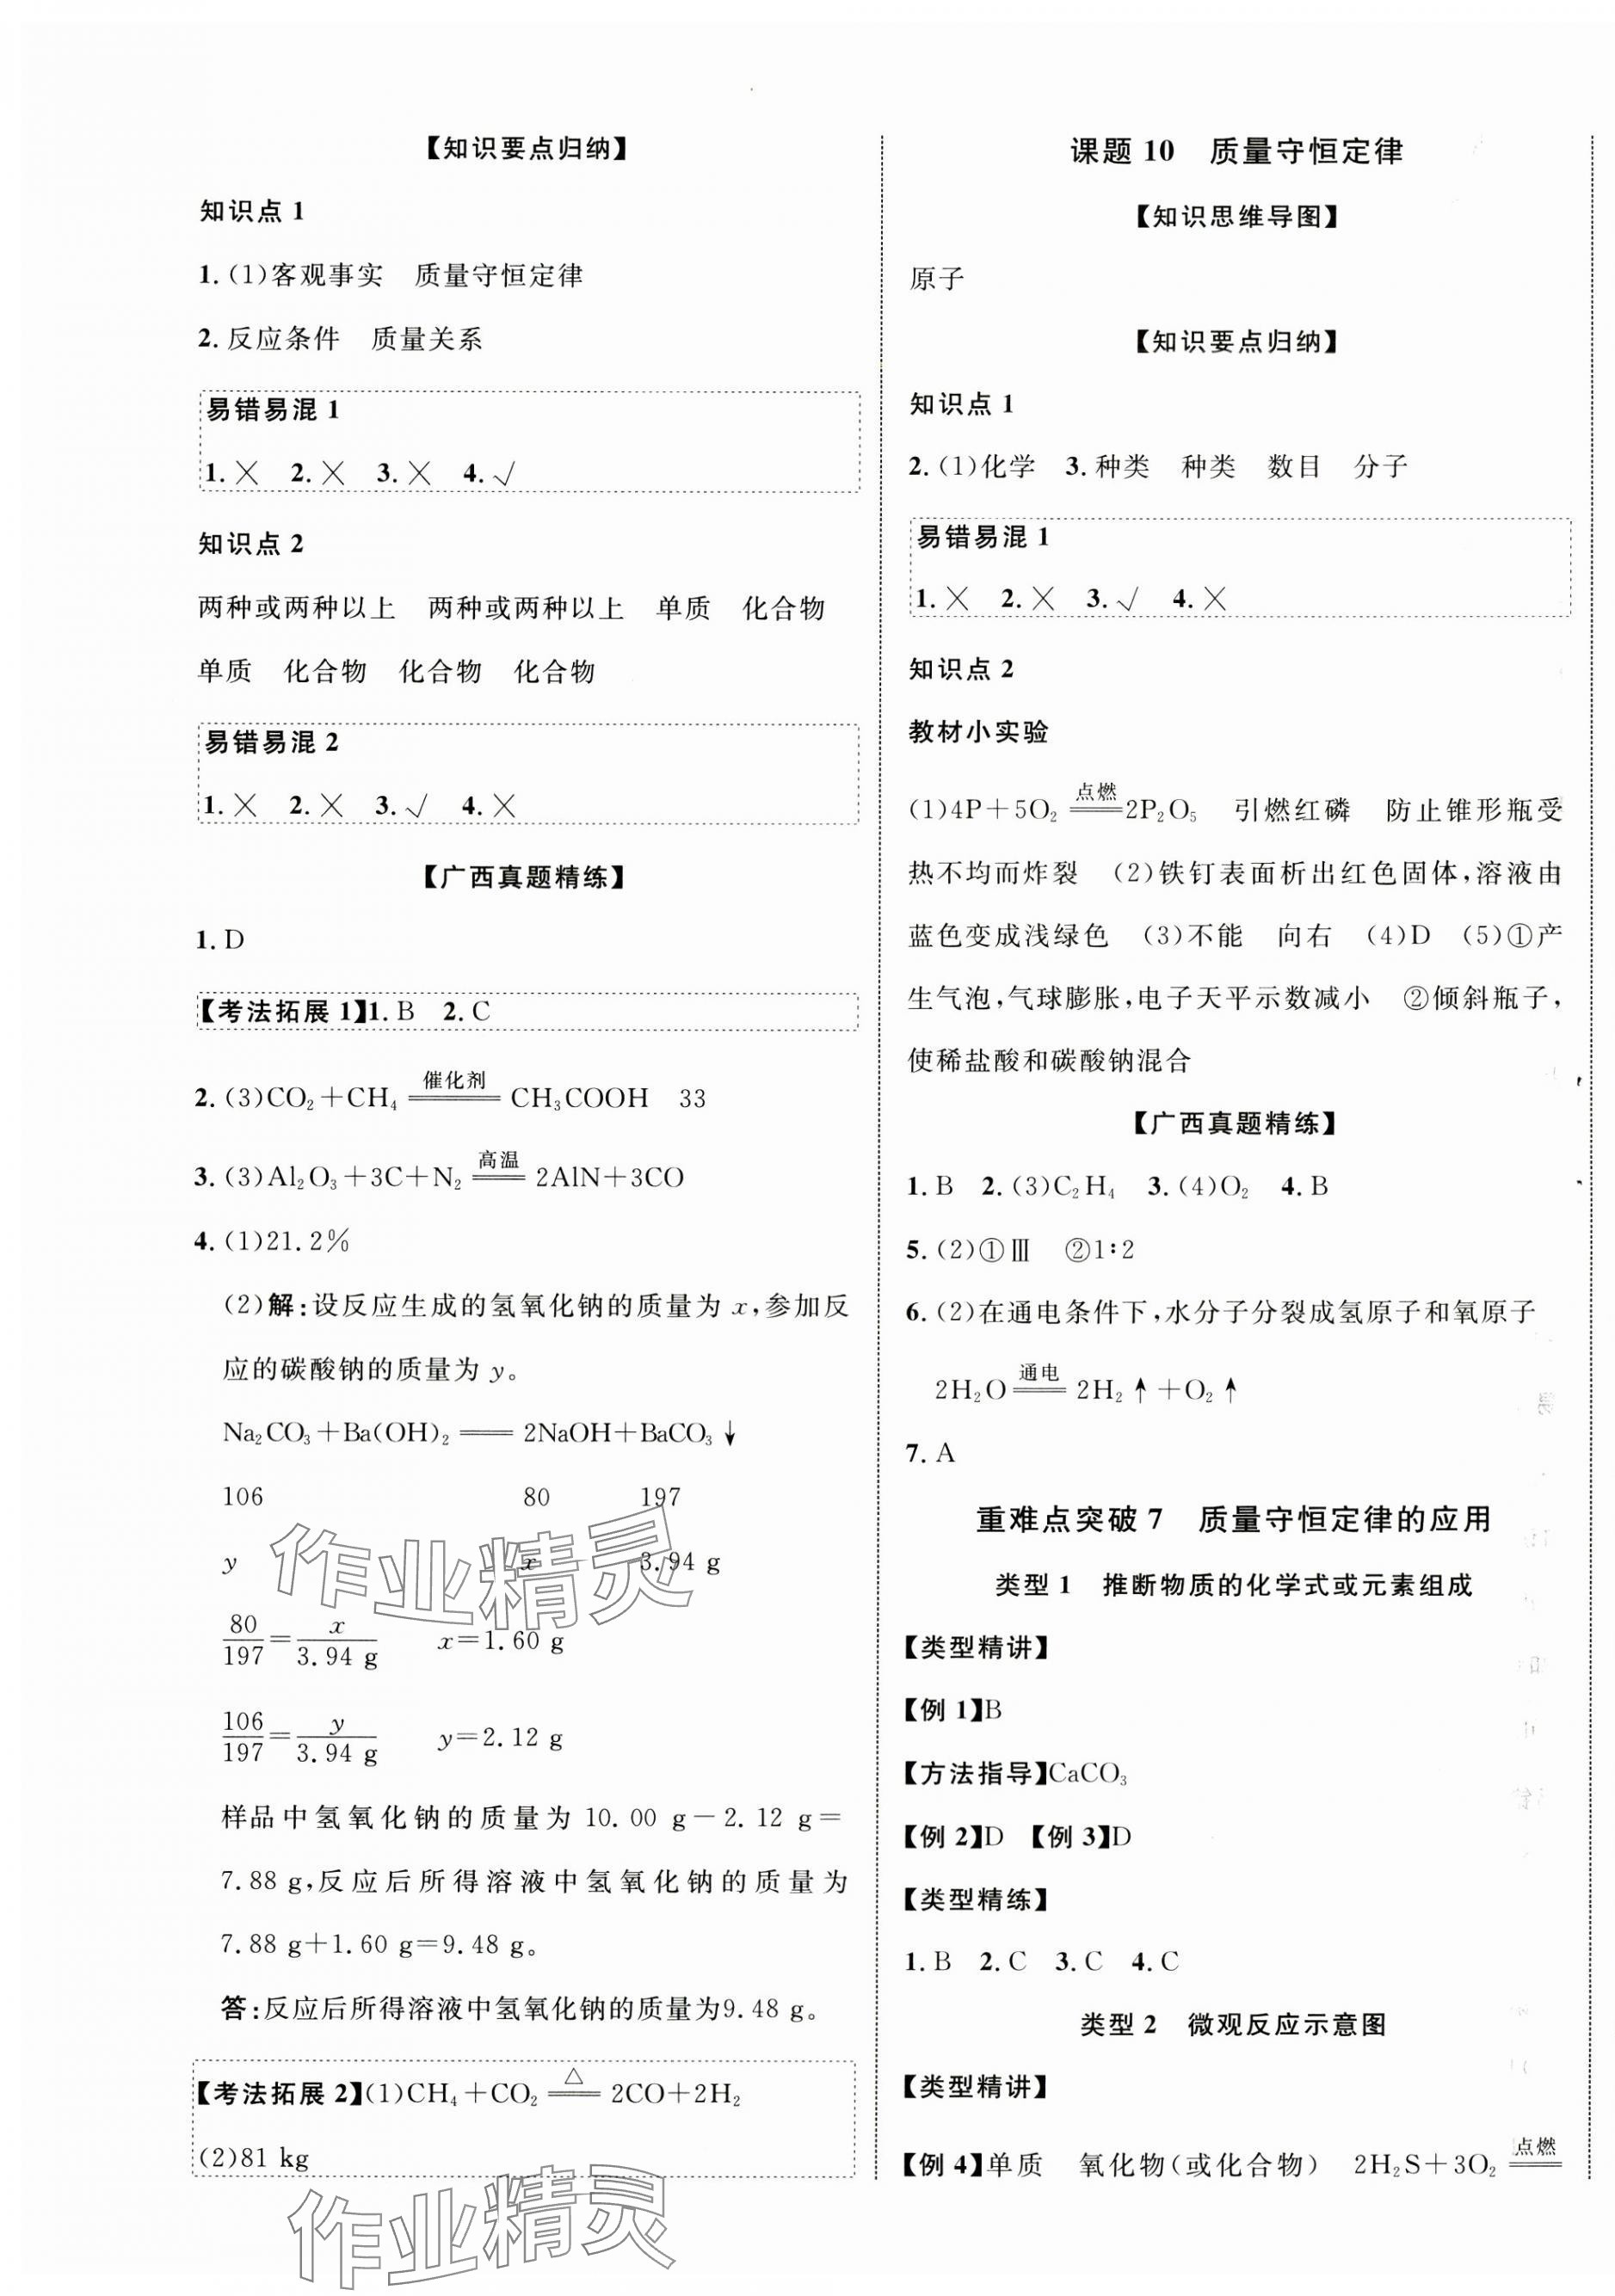 【知识要点归纳】
知识点 1
1. (1)客观事实　质量守恒定律
2. 反应条件　质量关系
易错易混 1
1. ╳　2. ╳　3. ╳　4. √
知识点 2
两种或两种以上　两种或两种以上　单质　化合物
单质　化合物　化合物　化合物
易错易混 2
1. ╳　2. ╳　3. √　4. ╳
【广西真题精练】
1. D
【考法拓展 1】1. B　2. C
2. (3)CO₂＋CH₄ ══催化剂══ CH₃COOH　33
3. (3)Al₂O₃＋3C＋N₂ ══高温══ 2AlN＋3CO
4. (1)21.2%
(2)解:设反应生成的氢氧化钠的质量为 x,参加反
应的碳酸钠的质量为 y。
Na₂CO₃＋Ba(OH)₂ ══ 2NaOH＋BaCO₃↓
106　80　197
y　x　3.94 g
80/197＝x/3.94 g　x＝1.60 g
106/197＝y/3.94 g　y＝2.12 g
样品中氢氧化钠的质量为 10.00 g－2.12 g＝
7.88 g,反应后所得溶液中氢氧化钠的质量为
7.88 g＋1.60 g＝9.48 g。
答:反应后所得溶液中氢氧化钠的质量为9.48 g。
【考法拓展 2】(1)CH₄＋CO₂ ══△══ 2CO＋2H₂
(2)81 kg
课题 10　质量守恒定律
【知识思维导图】
原子
【知识要点归纳】
知识点 1
2. (1)化学　3. 种类　种类　数目　分子
易错易混 1
1. ╳　2. ╳　3. √　4. ╳
知识点 2
教材小实验
(1)4P＋5O₂ ══点燃══ 2P₂O₅　引燃红磷　防止锥形瓶受
热不均而炸裂　(2)铁钉表面析出红色固体,溶液由
蓝色变成浅绿色　(3)不能　向右　(4)D　(5)①产
生气泡,气球膨胀,电子天平示数减小　②倾斜瓶子,
使稀盐酸和碳酸钠混合
【广西真题精练】
1. B　2. (3)C₂H₄　3. (4)O₂　4. B
5. (2)①Ⅲ　②1∶2
6. (2)在通电条件下,水分子分裂成氢原子和氧原子
2H₂O ══通电══ 2H₂↑＋O₂↑
7. A
重难点突破 7　质量守恒定律的应用
类型 1　推断物质的化学式或元素组成
【类型精讲】
【例 1】B
【方法指导】CaCO₃
【例 2】D　【例 3】D
【类型精练】
1. B　2. C　3. C　4. C
类型 2　微观反应示意图
【类型精讲】
【例 4】单质　氧化物(或化合物)　2H₂S＋3O₂ ══点燃══
作业精灵
作业精灵